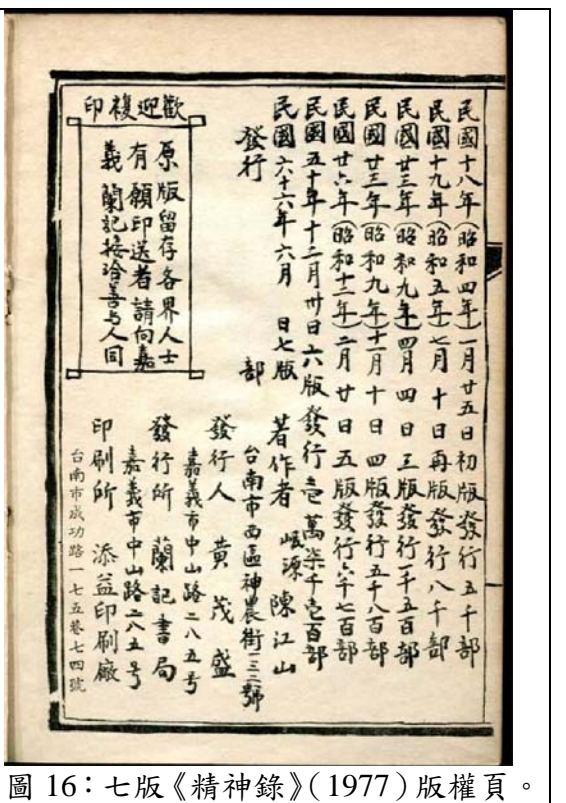 民國十八年（昭和四年）一月廿五日初版發行五千部
民國十九年（昭和五年）七月十日再版發行八千部
民國廿三年（昭和九年）四月四日三版發行一千五百部
民國廿三年（昭和九年）十一月十日四版發行五千八百部
民國廿六年（昭和十二年）二月廿日五版發行六千七百部
民國五十年十二月卅日六版發行壱萬柒千壱百部
民國六十六年六月　日七版
發行　部
著作者　岷源　陳江山
台南市西區神農街三三號
發行人　黄茂盛
嘉義市中山路二八五号
發行所　蘭記書局
嘉義市中山路二八五号
印刷所　添益印刷廠
台南市成功路一七五巷七四號
歡迎複印
原版留存各界人士
有願印送者請向嘉
義蘭記接洽善与人同
圖 16：七版《精神錄》（1977）版權頁。